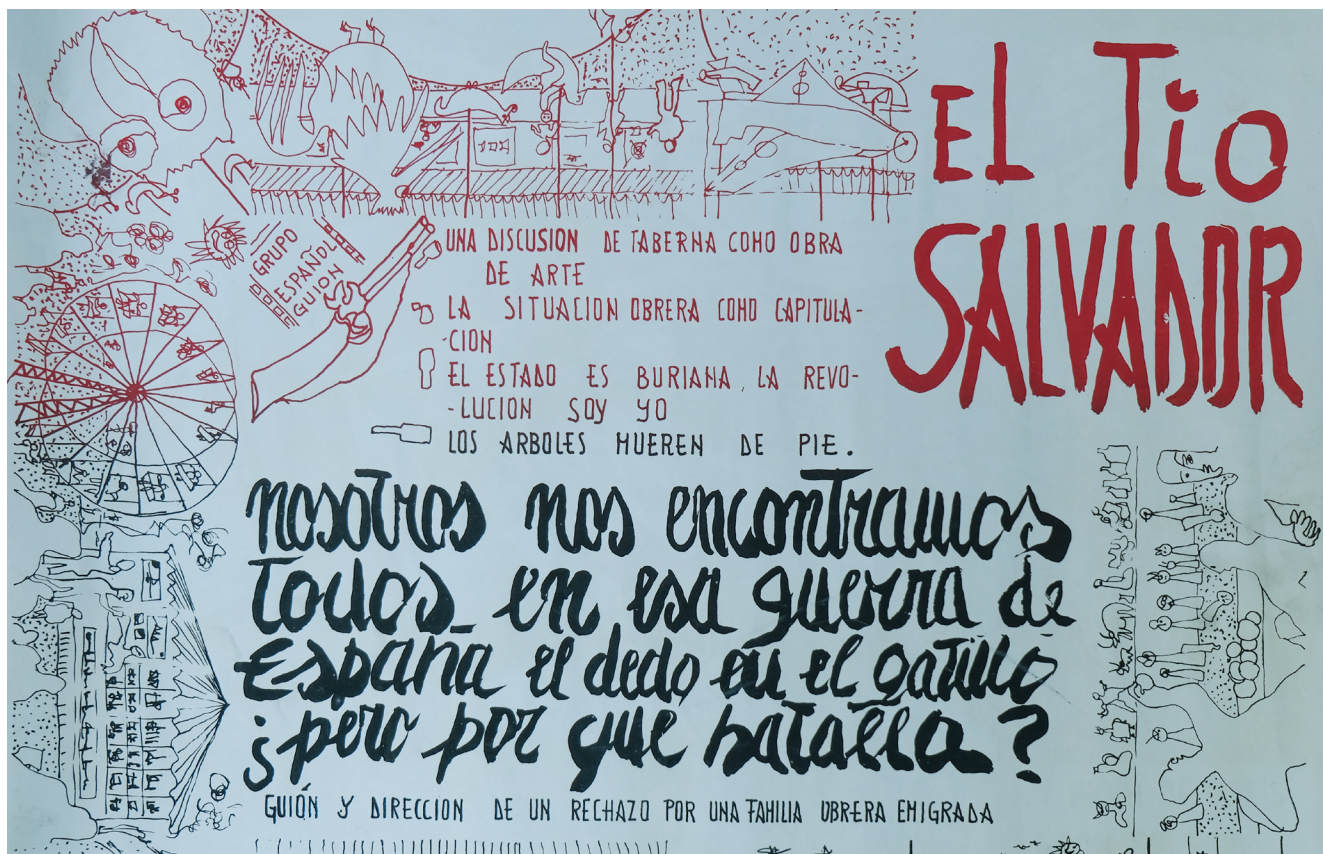 EL Tio
SALVADOR
GRUPO
ESPAÑOL
GUION
UNA DISCUSION DE TABERNA COMO OBRA
DE ARTE
LA SITUACION OBRERA COMO CAPITULA-
-CION
EL ESTADO ES BURIANA, LA REVO-
-LUCION SOY YO
LOS ARBOLES MUEREN DE PIE.
nosotros nos encontramos
todos en esa guerra de
España el dedo en el gatillo
¿pero por que batalla?
GUIÓN Y DIRECCION DE UN RECHAZO POR UNA FAMILIA OBRERA EMIGRADA